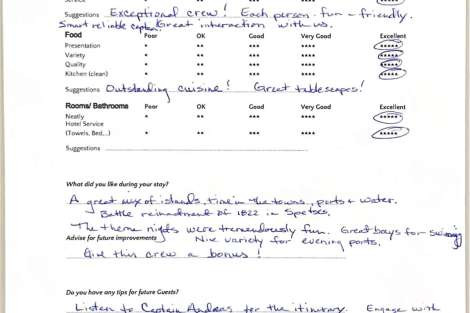 Suggestions Exceptional crew! Each person fun & friendly.
Smart reliable captain. Great interaction with us.
Food Poor OK Good Very Good Excellent
Presentation * ** *** **** *****
Variety * ** *** **** *****
Quality * ** *** **** *****
Kitchen (clean) * ** *** **** *****
Suggestions Outstanding cuisine! Great tablescapes!
Rooms/ Bathrooms Poor OK Good Very Good Excellent
Neatly * ** *** **** *****
Hotel Service
(Towels, Bed...) * ** *** **** *****
Suggestions
What did you like during your stay?
A great mix of islands, time in the towns, ports & water.
Battle reinactment of 1822 in Spetses.
The theme nights were tremendously fun. Great bays for swimming
Advise for future improvements Nice variety for evening ports.
Give this crew a bonus!
Do you have any tips for future Guests?
Listen to Captain Andreas for the itinerary. Engage with